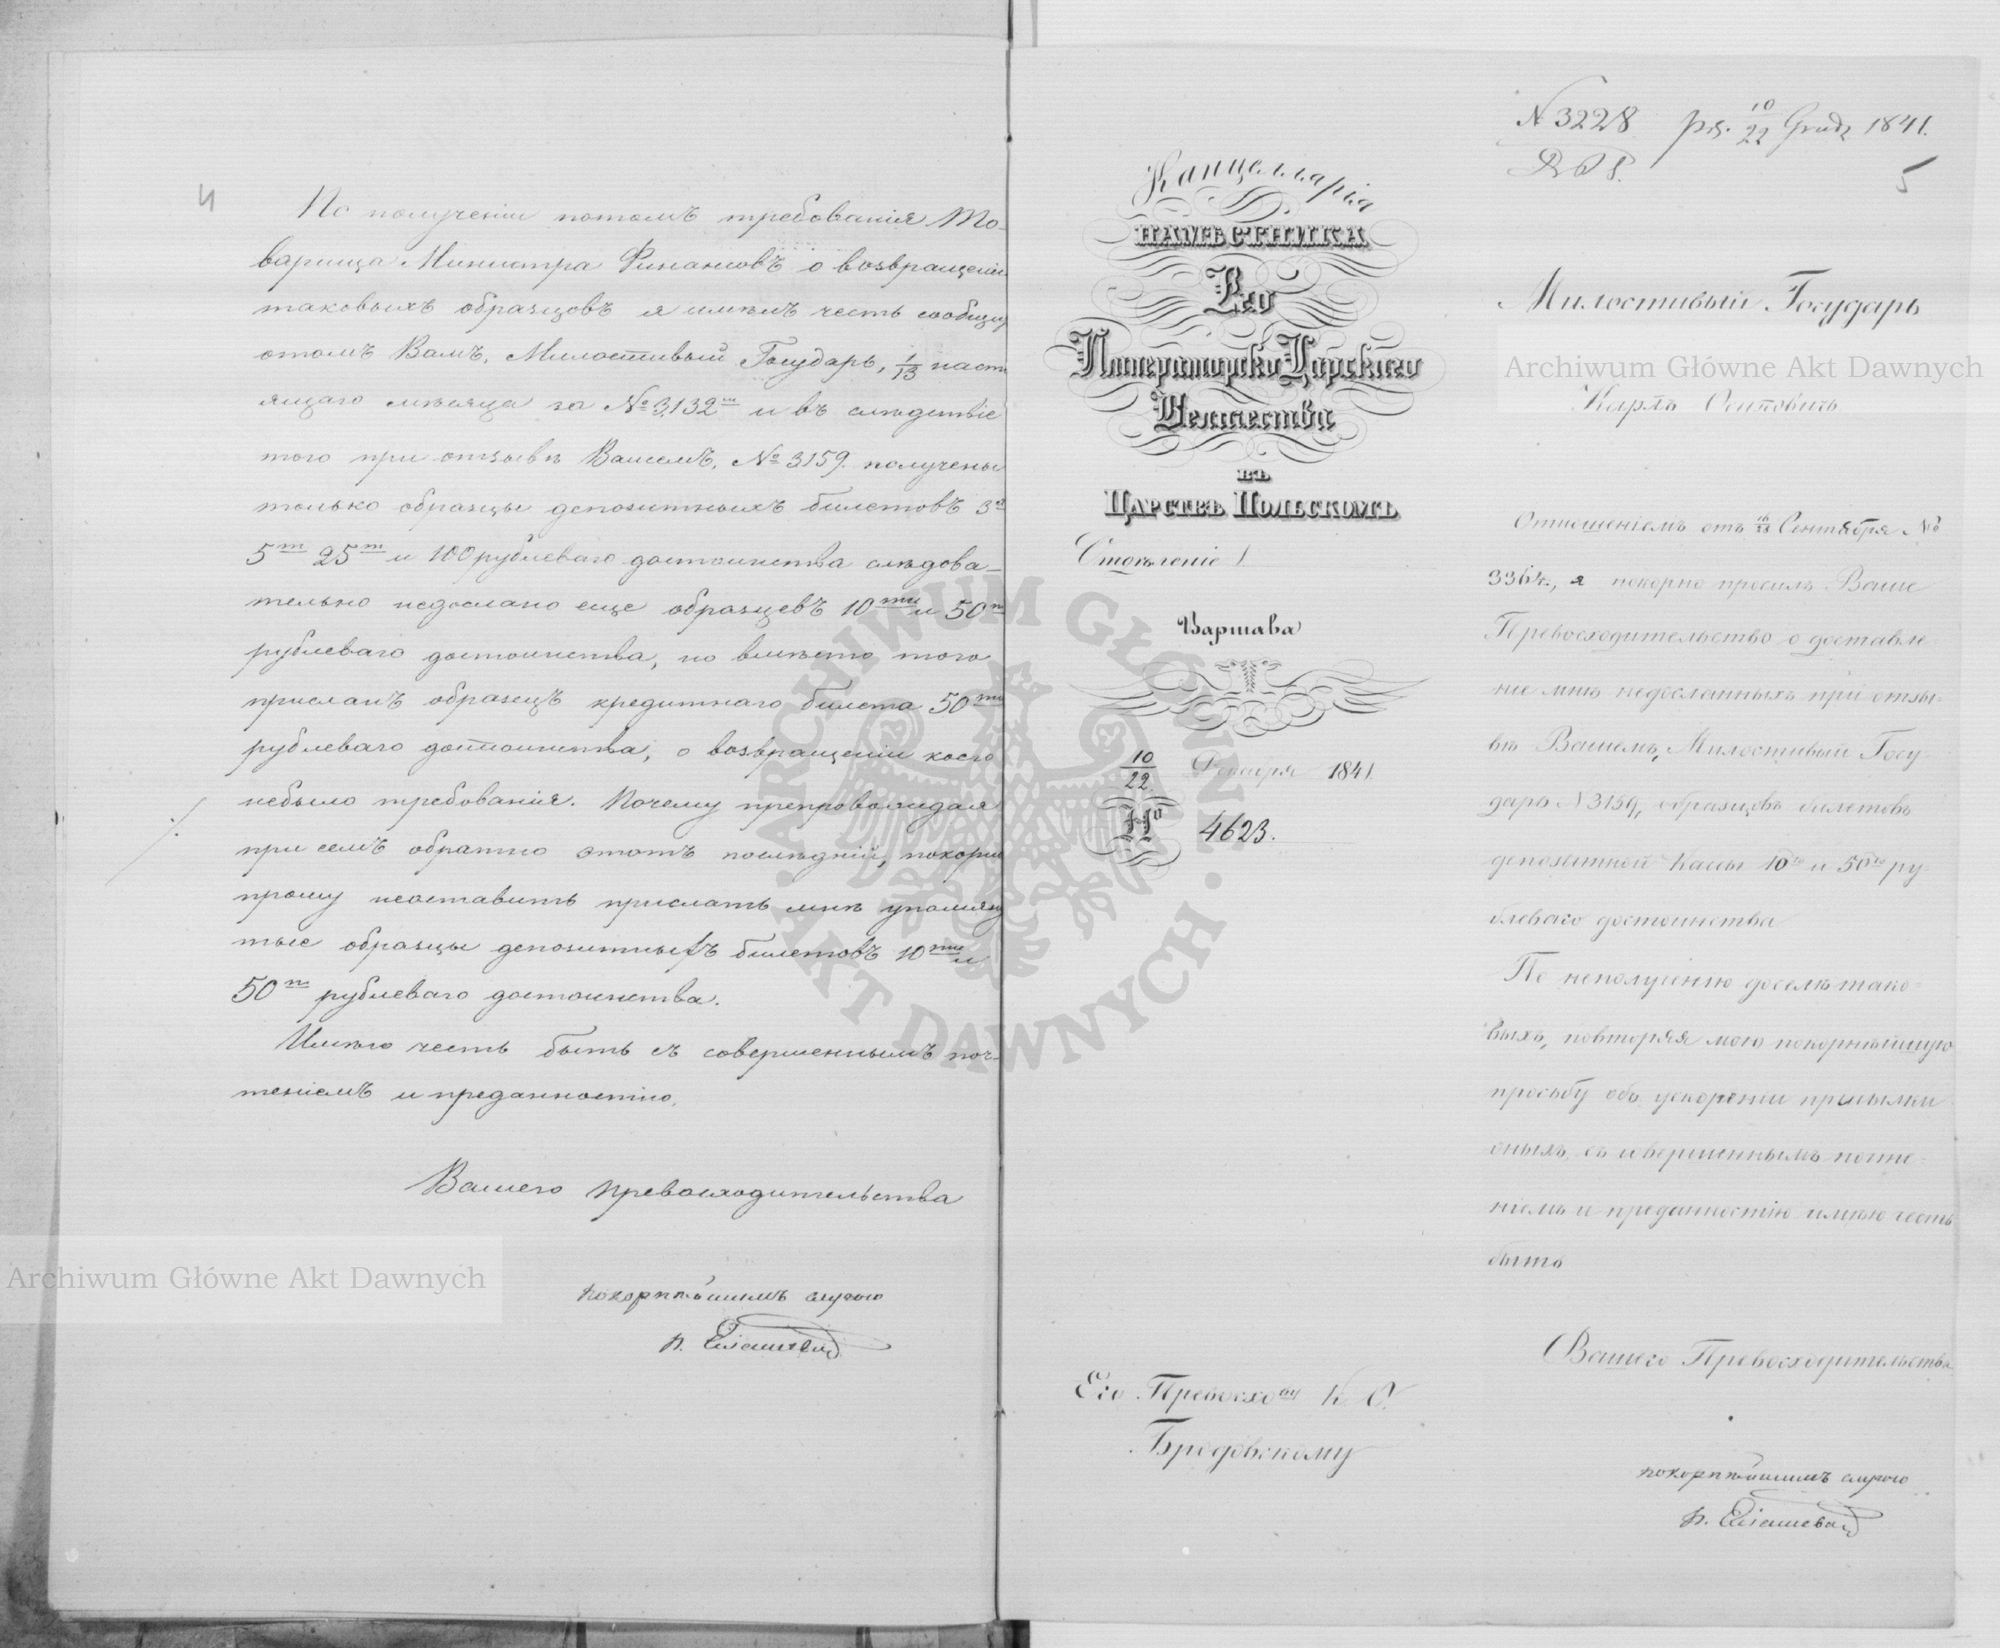 4
По полученіи потомъ требованія То-
варища Министра Финансовъ о возвращеніи
таковыхъ образцовъ я имѣлъ честь сообщить
о томъ Вамъ, Милостивый Государь, 1/13 насто
ящаго мѣсяца за № 3132 и въ слѣдствіе
того при отзывѣ Вашемъ, № 3159. получены
только образцы депозитныхъ билетовъ 3х
5ти 25ти и 100 рублеваго достоинства слѣдова-
тельно недослано еще образцевъ 10ти и 50ти
рублеваго достоинства, но вмѣсто того
присланъ образецъ кредитнаго билета 50ти
рублеваго достоинства, о возвращеніи коего
небыло требованія. Почему препровождая
при семъ обратно этотъ послѣдній, покорно
прошу неоставить прислать мнѣ упомяну
тые образцы депозитныхъ билетовъ 10ти и
50ти рублеваго достоинства.
Имѣю честь быть съ совершеннымъ поч-
теніемъ и преданностію,
Вашего Превосходительства
покорнѣйшимъ слугою
Archiwum Główne Akt Dawnych
Канцеллярія
НАМѢСТНИКА
Его
Императорско Царскаго
Величества
въ
Царствѣ Польскомъ
Отдѣленіе I
Варшава
10/22 Декабря 1841.
№ 4623.
Его Превосхо K. O.
Бродовскому
N 3228 10/22 Grudz 1841.
5
Милостивый Государь
Archiwum Główne Akt Dawnych
Карлъ Осиповичь
Отношеніемъ отъ 16/28 Сентября №
3364., я покорно просилъ Ваше
Превосходительство о доставле
ніе мнѣ недосланныхъ при отзы-
вѣ Вашемъ, Милостивый Госу-
дарь N 3159, образцовъ билетовъ
депозитной Кассы 10ти и 50ти ру-
блеваго достоинства
По неполученію доселѣ тако-
выхъ, повторяя мою покорнѣйшую
просьбу объ ускореніи присылки
оныхъ, съ совершеннымъ почте-
ніемъ и преданностію имѣю честь
быть
Вашего Превосходительства
покорнѣйшимъ слугою
ARCHIWUM GŁÓWNE · AKT DAWNYCH ·